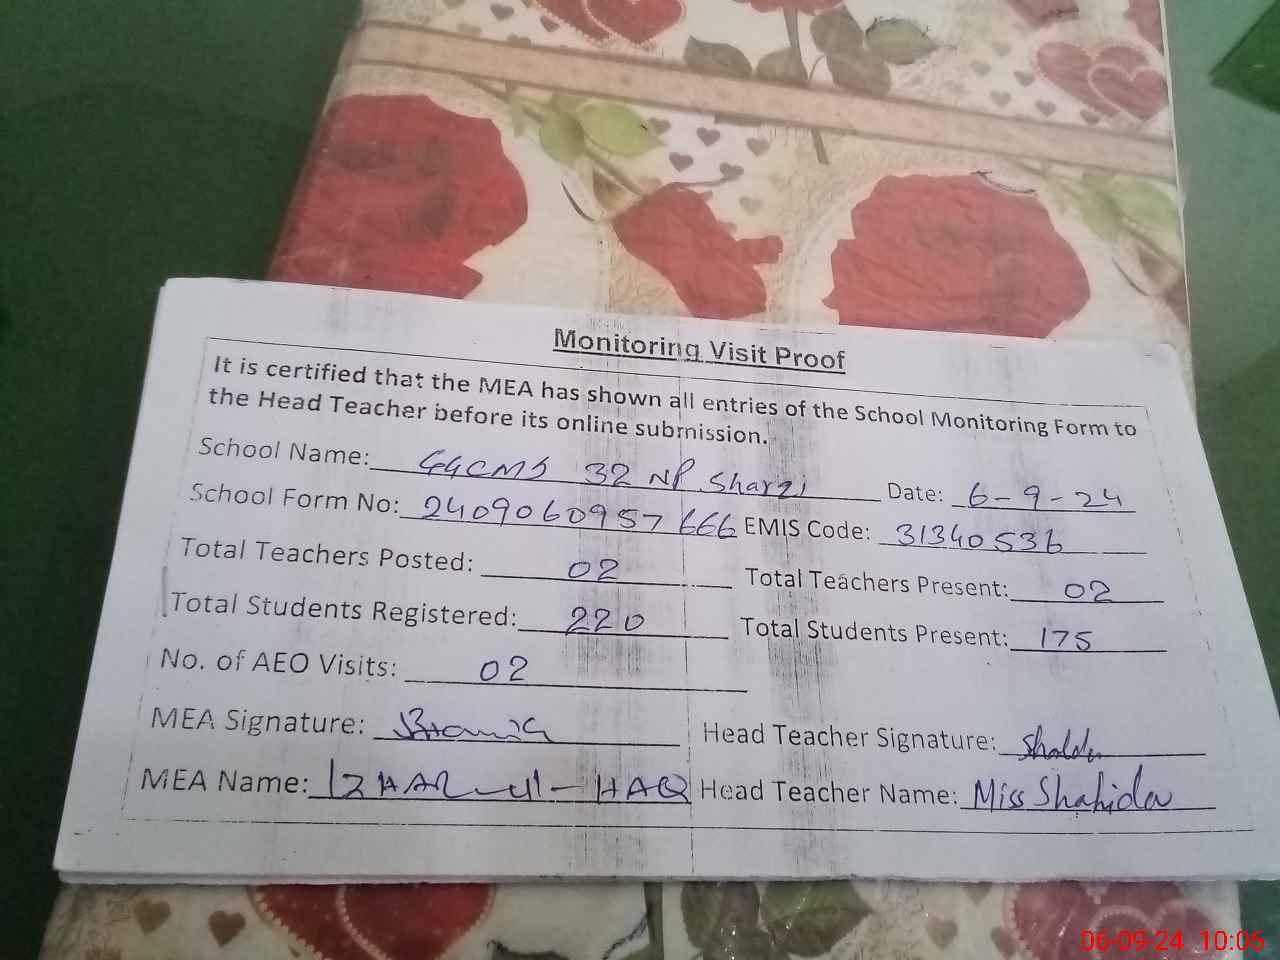 Monitoring Visit Proof
It is certified that the MEA has shown all entries of the School Monitoring Form to
the Head Teacher before its online submission.
School Name: GGCMS 32 NP Sharqi Date: 6-9-24
School Form No: 2409060957666 EMIS Code: 31340536
Total Teachers Posted: 02 Total Teachers Present: 02
Total Students Registered: 220 Total Students Present: 175
No. of AEO Visits: 02
MEA Signature: Head Teacher Signature:
MEA Name: IZHAR-ul-HAQ Head Teacher Name: Miss Shahida
06-09-24 10:06